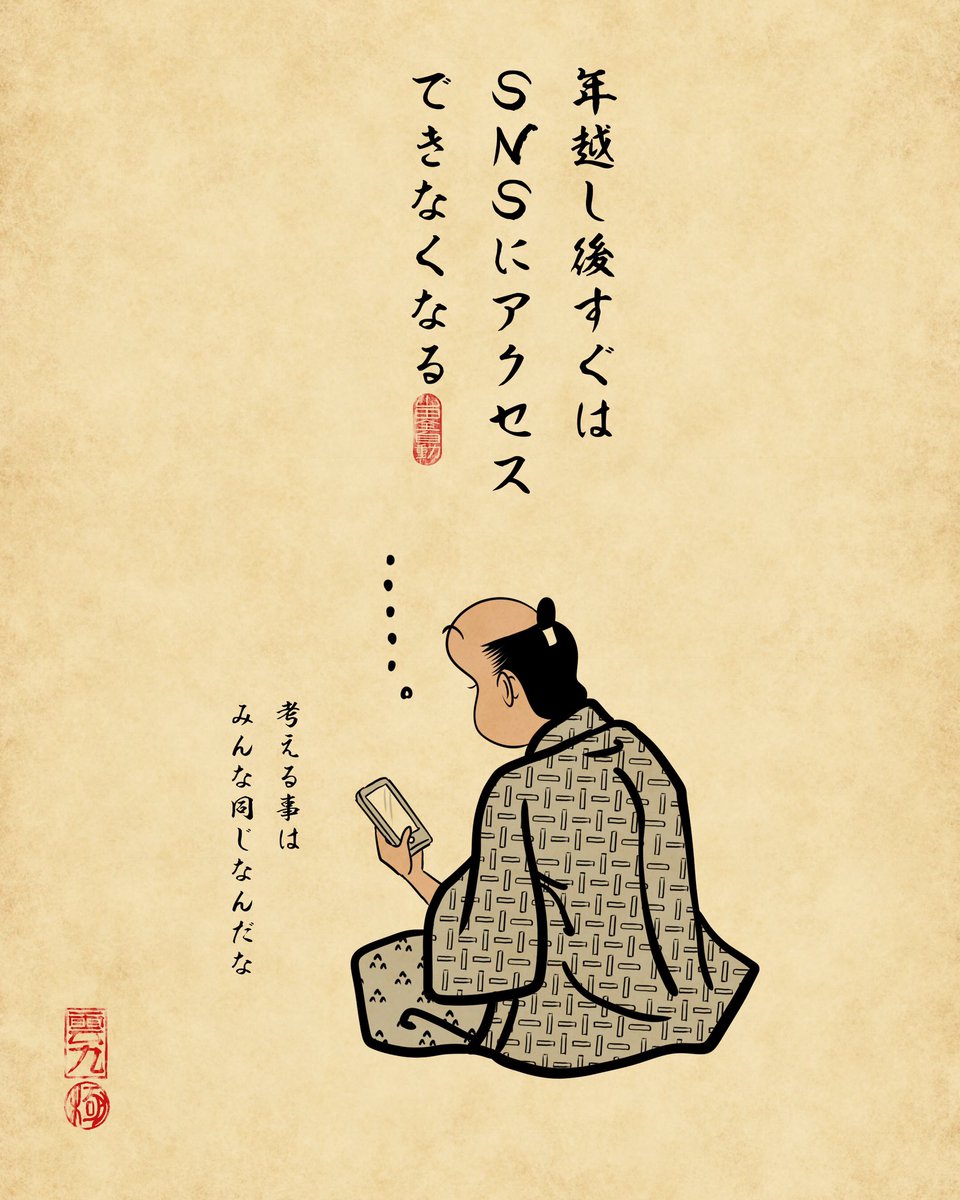 年越し後すぐは
SNSにアクセス
できなくなる
・・・・・。
考える事は
みんな同じなんだな